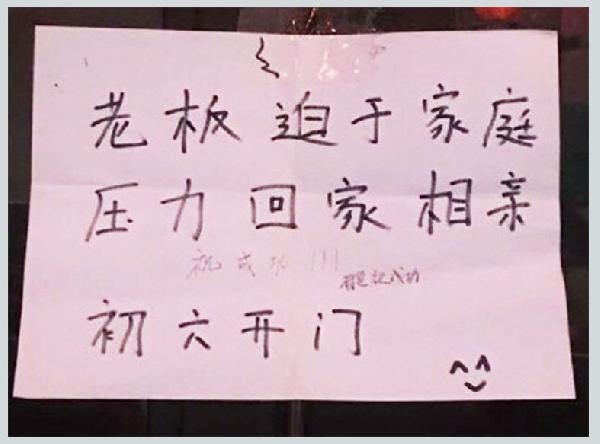 老板迫于家庭
压力回家相亲
祝成功!!!
祝成功
初六开门